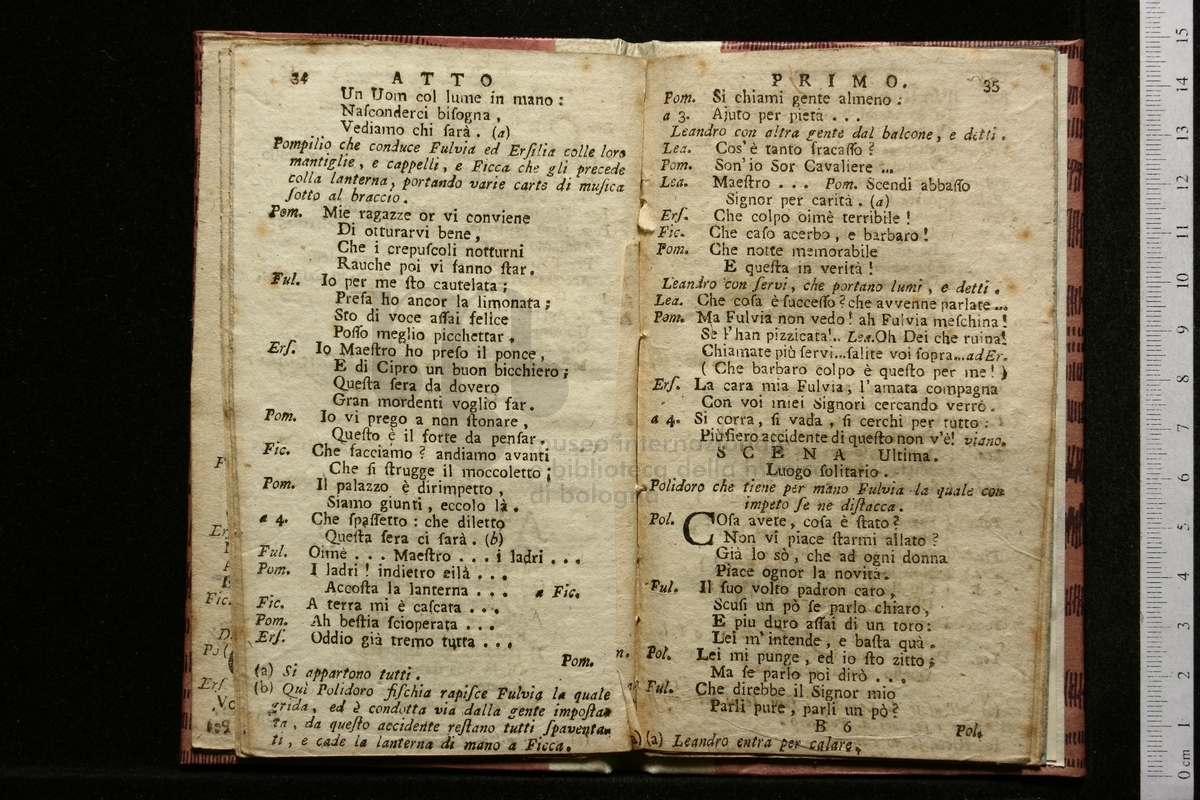 34 ATTO
Un Uom col lume in mano:
Naſconderci biſogna,
Vediamo chi ſarà. (a)
Pompilio che conduce Fulvia ed Erſilia colle loro
mantiglie, e cappelli, e Ficca che gli precede
colla lanterna, portando varie carte di muſica
ſotto al braccio.
Pom. Mie ragazze or vi conviene
Di otturarvi bene,
Che i crepuſcoli notturni
Rauche poi vi fanno ſtar.
Ful. Io per me ſto cautelata;
Preſa ho ancor la limonata;
Sto di voce aſſai felice
Poſſo meglio picchettar.
Erſ. Io Maeſtro ho preſo il ponce,
E di Cipro un buon bicchiero;
Queſta ſera da dovero
Gran mordenti voglio far.
Pom. Io vi prego a non ſtonare,
Queſto è il forte da penſar.
Fic. Che facciamo? andiamo avanti
Che ſi ſtrugge il moccoletto;
Pom. Il palazzo è dirimpetto,
Siamo giunti, eccolo là.
a 4. Che ſpaſſetto: che diletto
Queſta ſera ci ſarà. (b)
Ful. Oimè . . . Maeſtro . . . i ladri . . .
Pom. I ladri! indietro eilà . . .
Accoſta la lanterna . . . a Fic.
Fic. A terra mi è caſcata . . .
Pom. Ah beſtia ſcioperata . . .
Erſ. Oddio già tremo tutta . . .
Pom.
(a) Si appartono tutti.
(b) Quì Polidoro fiſchia rapiſce Fulvia la quale
grida, ed è condotta via dalla gente impoſta-
ta, da queſto accidente reſtano tutti ſpaventa-
ti, e cade la lanterna di mano a Ficca.
PRIMO. 35
Pom. Si chiami gente almeno:
a 3. Ajuto per pietà . . .
Leandro con altra gente dal balcone, e detti.
Lea. Cos'è tanto fracaſſo?
Pom. Son'io Sor Cavaliere ...
Lea. Maeſtro . . . Pom. Scendi abbaſſo
Signor per carità. (a)
Erſ. Che colpo oimè terribile!
Fic. Che caſo acerbo, e barbaro!
Pom. Che notte memorabile
E queſta in verità!
Leandro con ſervi, che portano lumi, e detti.
Lea. Che coſa è ſucceſſo? che avvenne parlate...
Pom. Ma Fulvia non vedo! ah Fulvia meſchina!
Se l'han pizzicata!.. Lea. Oh Dei che ruina!
Chiamate più ſervi...ſalite voi ſopra...ad Er.
( Che barbaro colpo è queſto per me! )
Erſ. La cara mia Fulvia, l'amata compagna
Con voi miei Signori cercando verrò.
a 4. Si corra, ſi vada, ſi cerchi per tutto:
Più fiero accidente di queſto non v'è! viano.
SCENA Ultima.
Luogo ſolitario.
Polidoro che tiene per mano Fulvia la quale con
impeto ſe ne diſtacca.
Pol. COſa avete, coſa è ſtato?
Non vi piace ſtarmi allato?
Già lo sò, che ad ogni donna
Piace ognor la novità.
Ful. Il ſuo volto padron caro,
Scuſi un pò ſe parlo chiaro,
E piu duro aſſai di un toro:
Lei m'intende, e baſta quà.
Pol. Lei mi punge, ed io ſto zitto;
Ma ſe parlo poi dirò . . .
Ful. Che direbbe il Signor mio
Parli pure, parli un pò?
B 6 Pol.
(a) Leandro entra per calare.